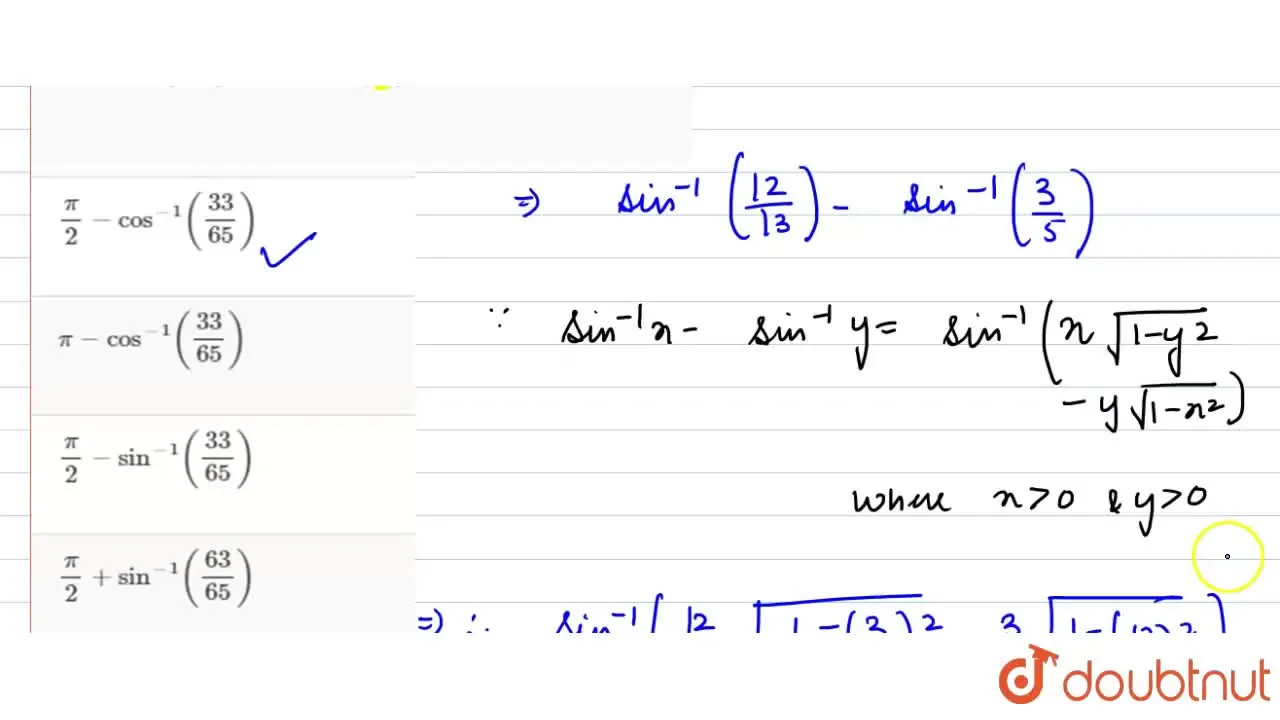 π/2 − cos⁻¹(33/65) ✓
π − cos⁻¹(33/65)
π/2 − sin⁻¹(33/65)
π/2 + sin⁻¹(63/65)
⇒ sin⁻¹(12/13) − sin⁻¹(3/5)
∵ sin⁻¹x − sin⁻¹y = sin⁻¹(x √(1−y²)
− y√(1−x²))
where x>0 & y>0
⇒ ∴ sin⁻¹[12 √1−(3)2 3 √1−(12)2]
doubtnut